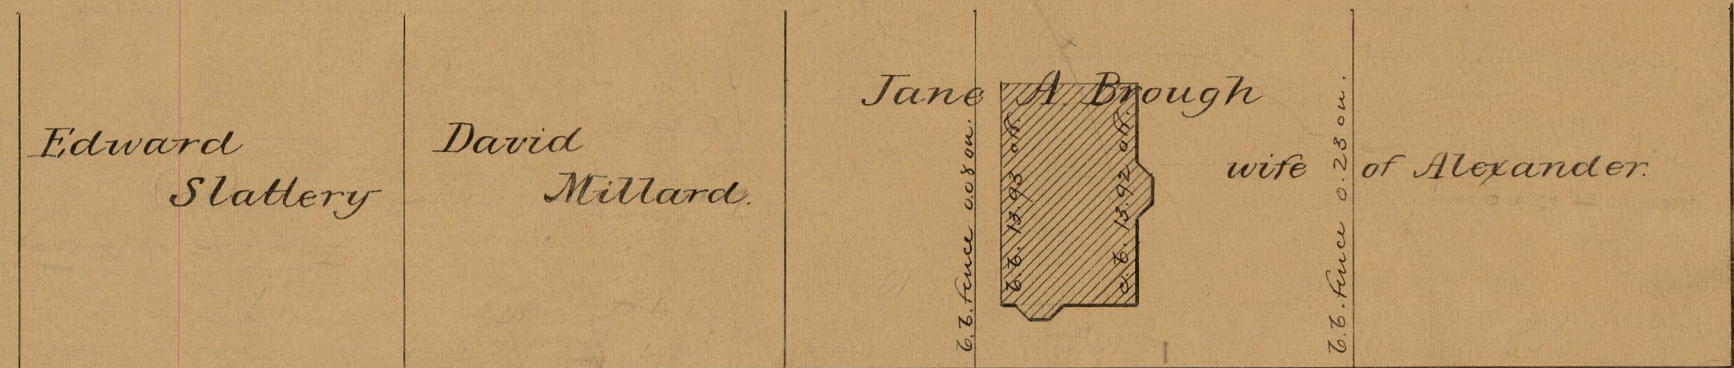 Edward
Slattery
David
Millard.
Jane A Brough
wife of Alexander.
fence 0.08 on.
13.93 off.
13.92 off.
fence 0.23 on.